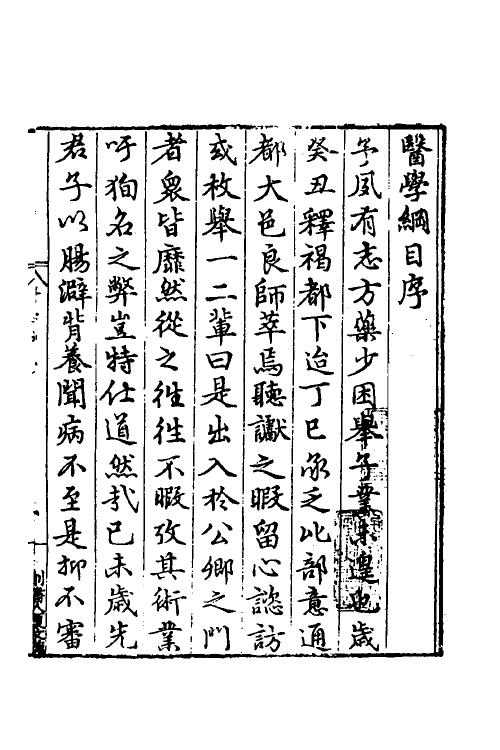 醫學綱目序
予夙有志方藥少困舉子業未遑也歲
癸丑釋褐都下迨丁巳承乏比部意通
都大邑良師萃焉聽讞之暇留心諮訪
或枚舉一二輩曰是出入於公卿之門
者衆皆靡然從之徃徃不暇攷其術業
吁狥名之弊豈特仕道然㢤已未歲先
君子以腸澼背養聞病不至是抑不審